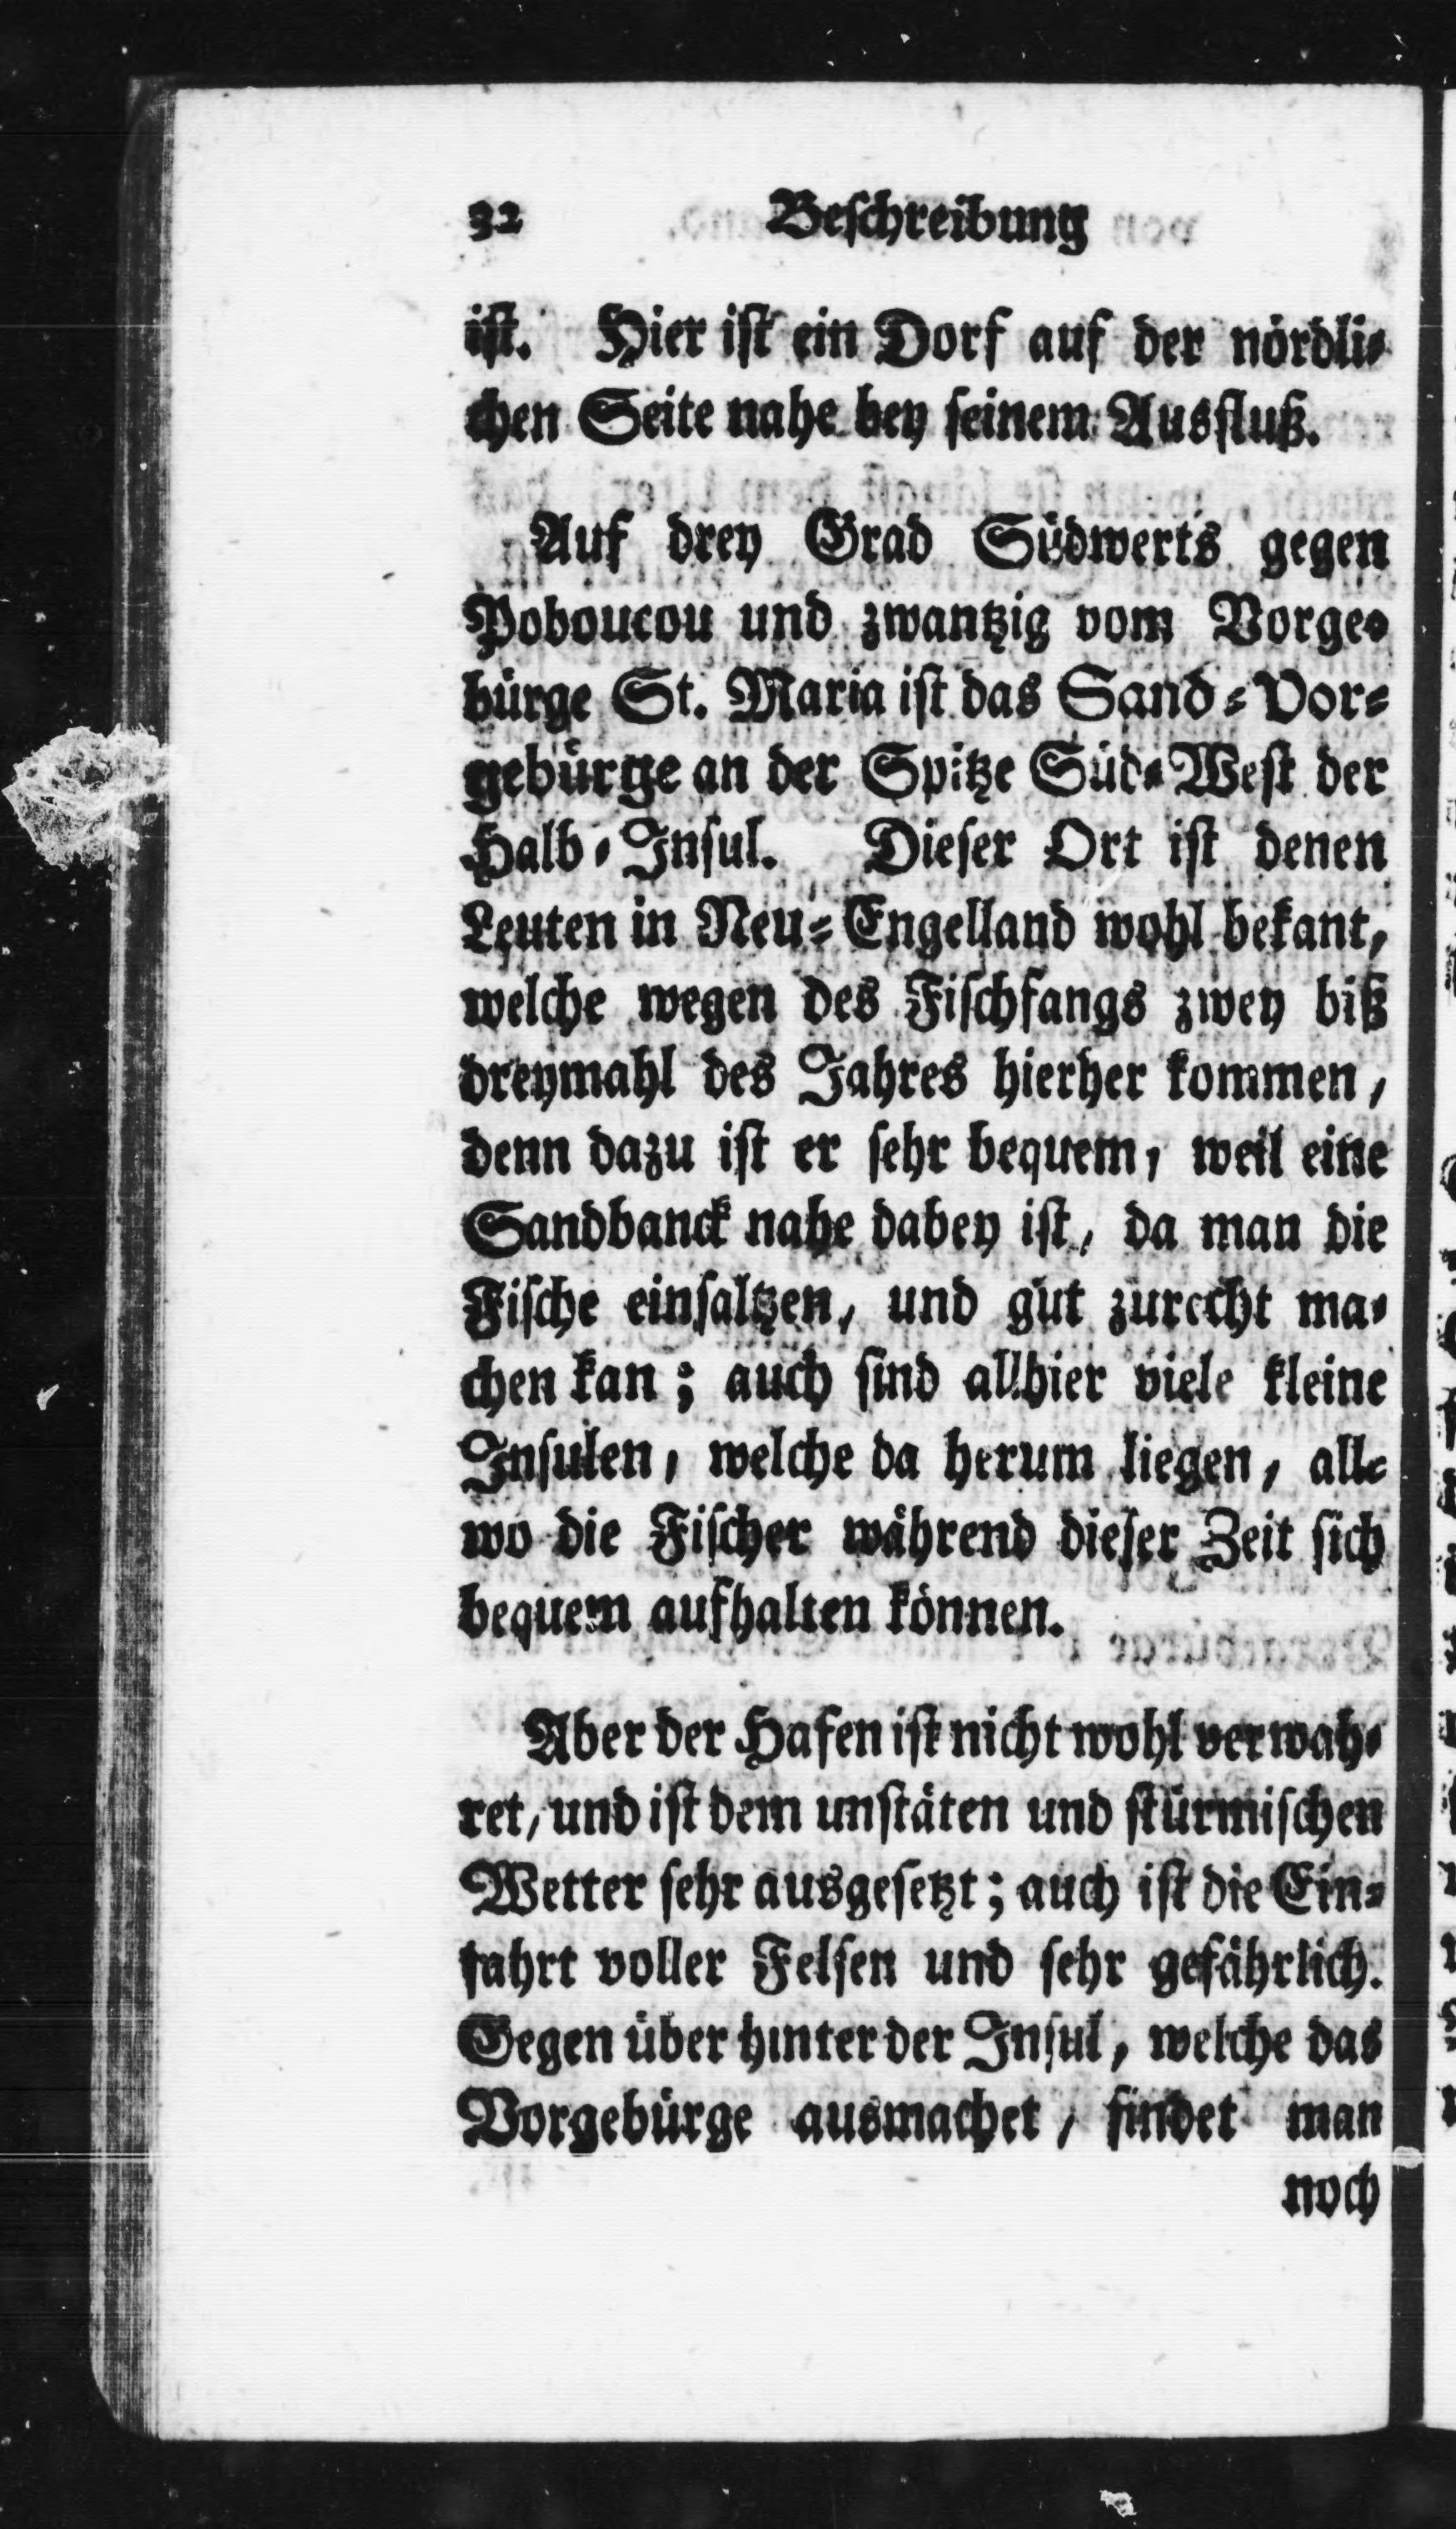 32 Beschreibung
ist. Hier ist ein Dorf auf der nördli-
chen Seite nahe bey seinem Ausfluß.
Auf drey Grad Südwerts gegen
Poboucou und zwantzig vom Vorge-
bürge St. Maria ist das Sand-Vor-
gebürge an der Spitze Süd-West der
Halb-Insul. Dieser Ort ist denen
Leuten in Neu-Engelland wohl bekant,
welche wegen des Fischfangs zwey biß
dreymahl des Jahres hierher kommen,
denn dazu ist er sehr bequem, weil eine
Sandbanck nahe dabey ist, da man die
Fische einsaltzen, und gut zurecht ma-
chen kan; auch sind allhier viele kleine
Insulen, welche da herum liegen, alle
wo die Fischer während dieser Zeit sich
bequem aufhalten können.
Aber der Hafen ist nicht wohl verwah-
ret, und ist dem unstäten und stürmischen
Wetter sehr ausgesetzt; auch ist die Ein-
fahrt voller Felsen und sehr gefährlich.
Gegen über hinter der Insul, welche das
Vorgebürge ausmachet, findet man
noch